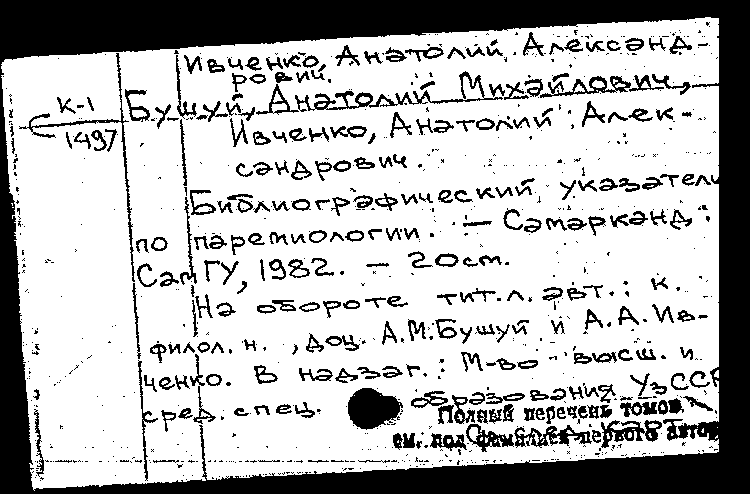 Ивченко, Анатолий Александ-
рович.
К-1
1497
Бушуй, Анатолий Михайлович,
Ивченко, Анатолий Алек-
сандрович.
Библиографический указатель
по паремиологии. — Самарканд:
СамГУ, 1982. — 20см.
На обороте тит.л. авт.: к.
филол. н., доц. А.М.Бушуй и А.А.Ив-
ченко. В надзаг.: М-во высш. и
сред. спец. образования УзССР
Полный перечень томов
см. под фамилией первого автора